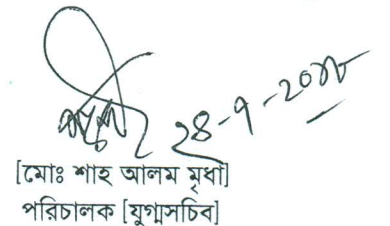 ২৪-৭-২০১৮
[মোঃ শাহ আলম মৃধা]
পরিচালক [যুগ্মসচিব]